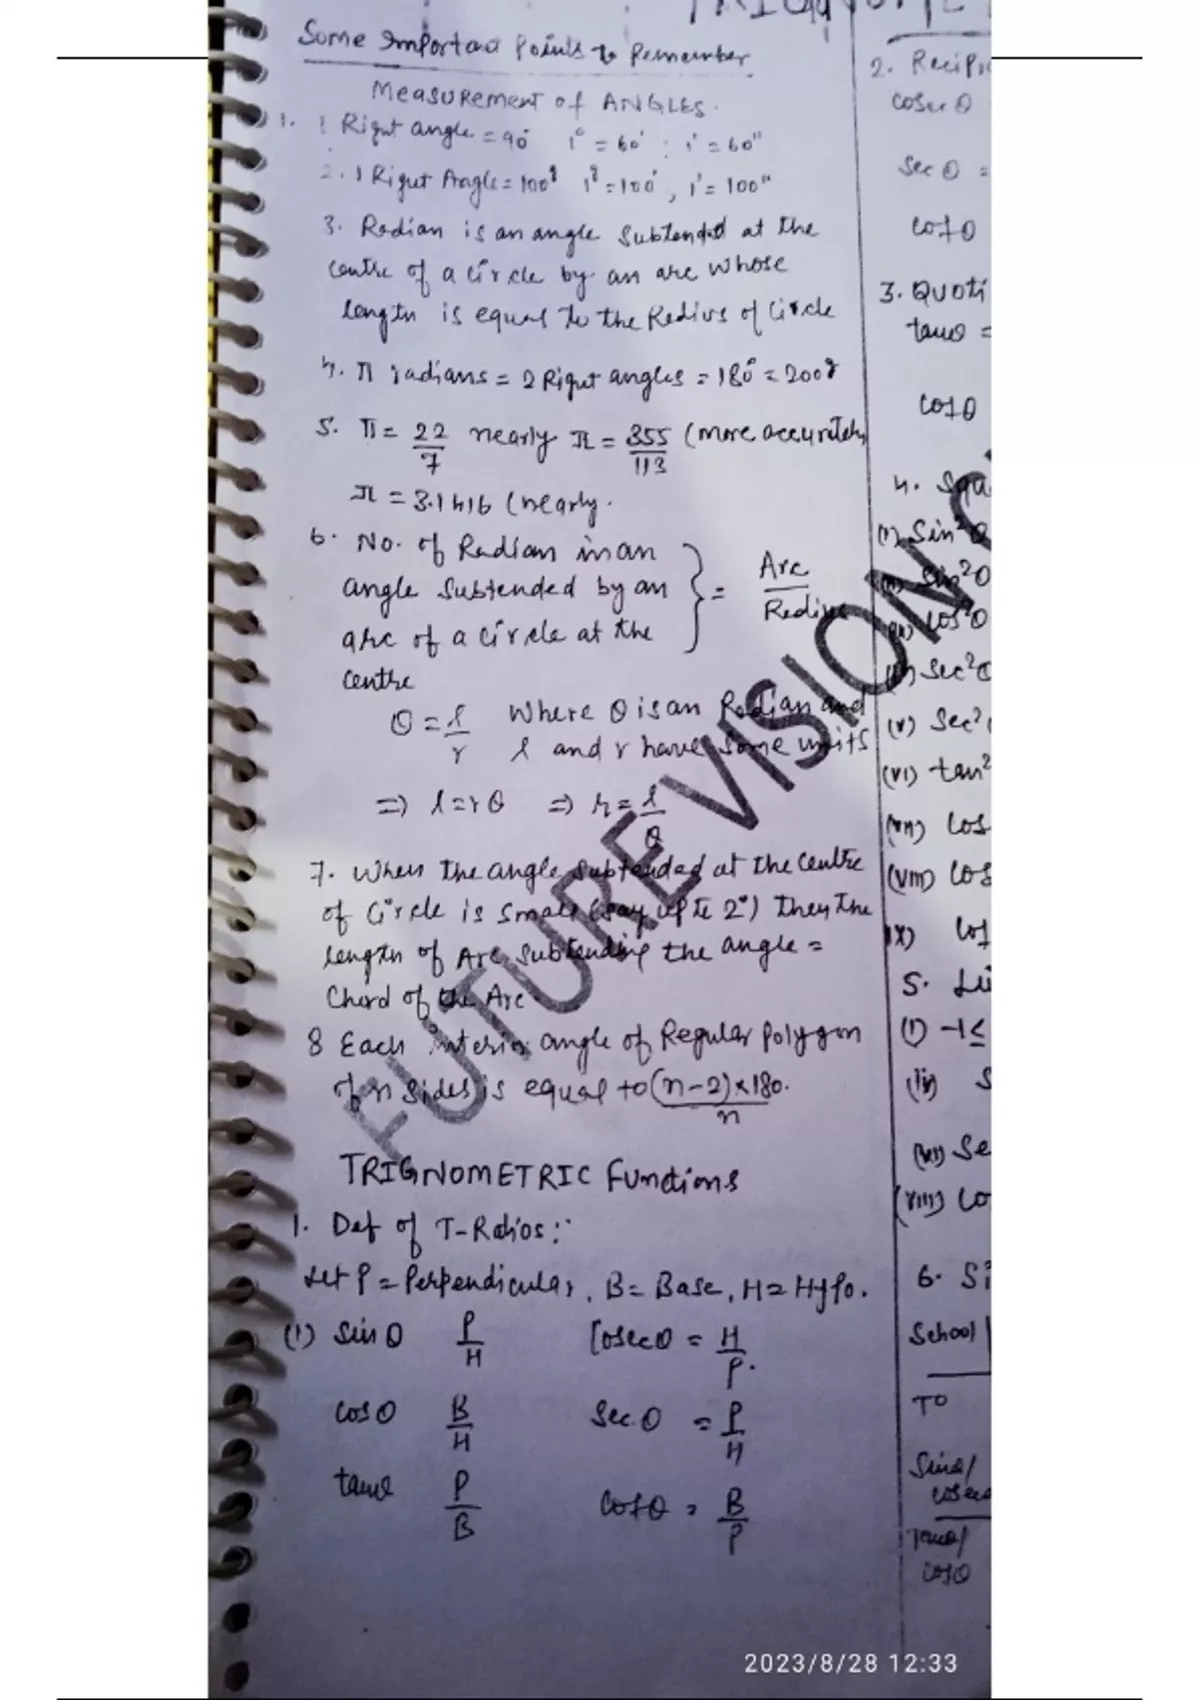 Some Important Points to Remember
MEASUREMENT of ANGLES.
1. 1 Right angle = 90° 1° = 60' ; 1' = 60"
2. 1 Right Angle = 100g 1g = 100', 1' = 100"
3. Radian is an angle subtended at the
centre of a circle by an arc whose
length is equal to the Redius of Circle
4. π radians = 2 Right angles = 180° = 200g
5. π = 22/7 nearly π = 355/113 (more accurately
π = 3.1416 (nearly.
6. No. of Radian in an
angle Subtended by an
arc of a circle at the
centre
} = Arc/Redius
θ = l/r where θ is an Radian and
l and r have some units
=> l = rθ => r = l/θ
7. When the angle subtended at the centre
of Circle is small (say up to 2°) then the
length of Arc subtending the angle =
Chord of the Arc.
8 Each interior angle of Regular Polygon
of n sides is equal to (n-2)×180./n
TRIGNOMETRIC Functions
1. Def of T-Ratios:
Let P = Perpendicular, B = Base, H = Hypo.
(1) sin θ P/H Cosec θ = H/P.
cos θ B/H Sec θ = P/H
tan θ P/B Cot θ = B/P
2. Recip
cosec θ
sec θ =
cot θ
3. Quoti
tan θ =
cot θ
4. Squ
(i) Sin²θ
sin²θ
cos²θ
sec²θ
(v) sec²
(vi) tan²
(vii) cos
(viii) cos
(ix) cos
5. Li
(i) -1≤
(ii) S
(vii) Se
(viii) Co
6. Si
School
To
Sinθ/
cosec
Tanθ/
cotθ
FUTURE VISION
2023/8/28 12:33